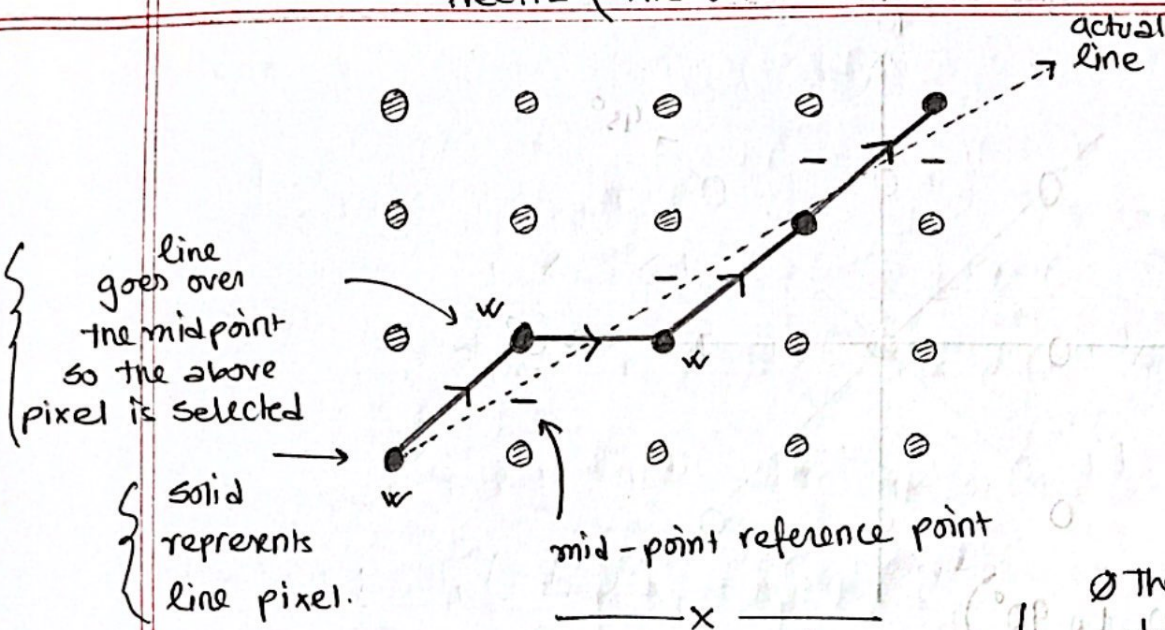 actual
line
line
goes over
the midpoint
so the above
pixel is selected
w
w
w
solid
represents
line pixel.
mid-point reference point
x
Ø The